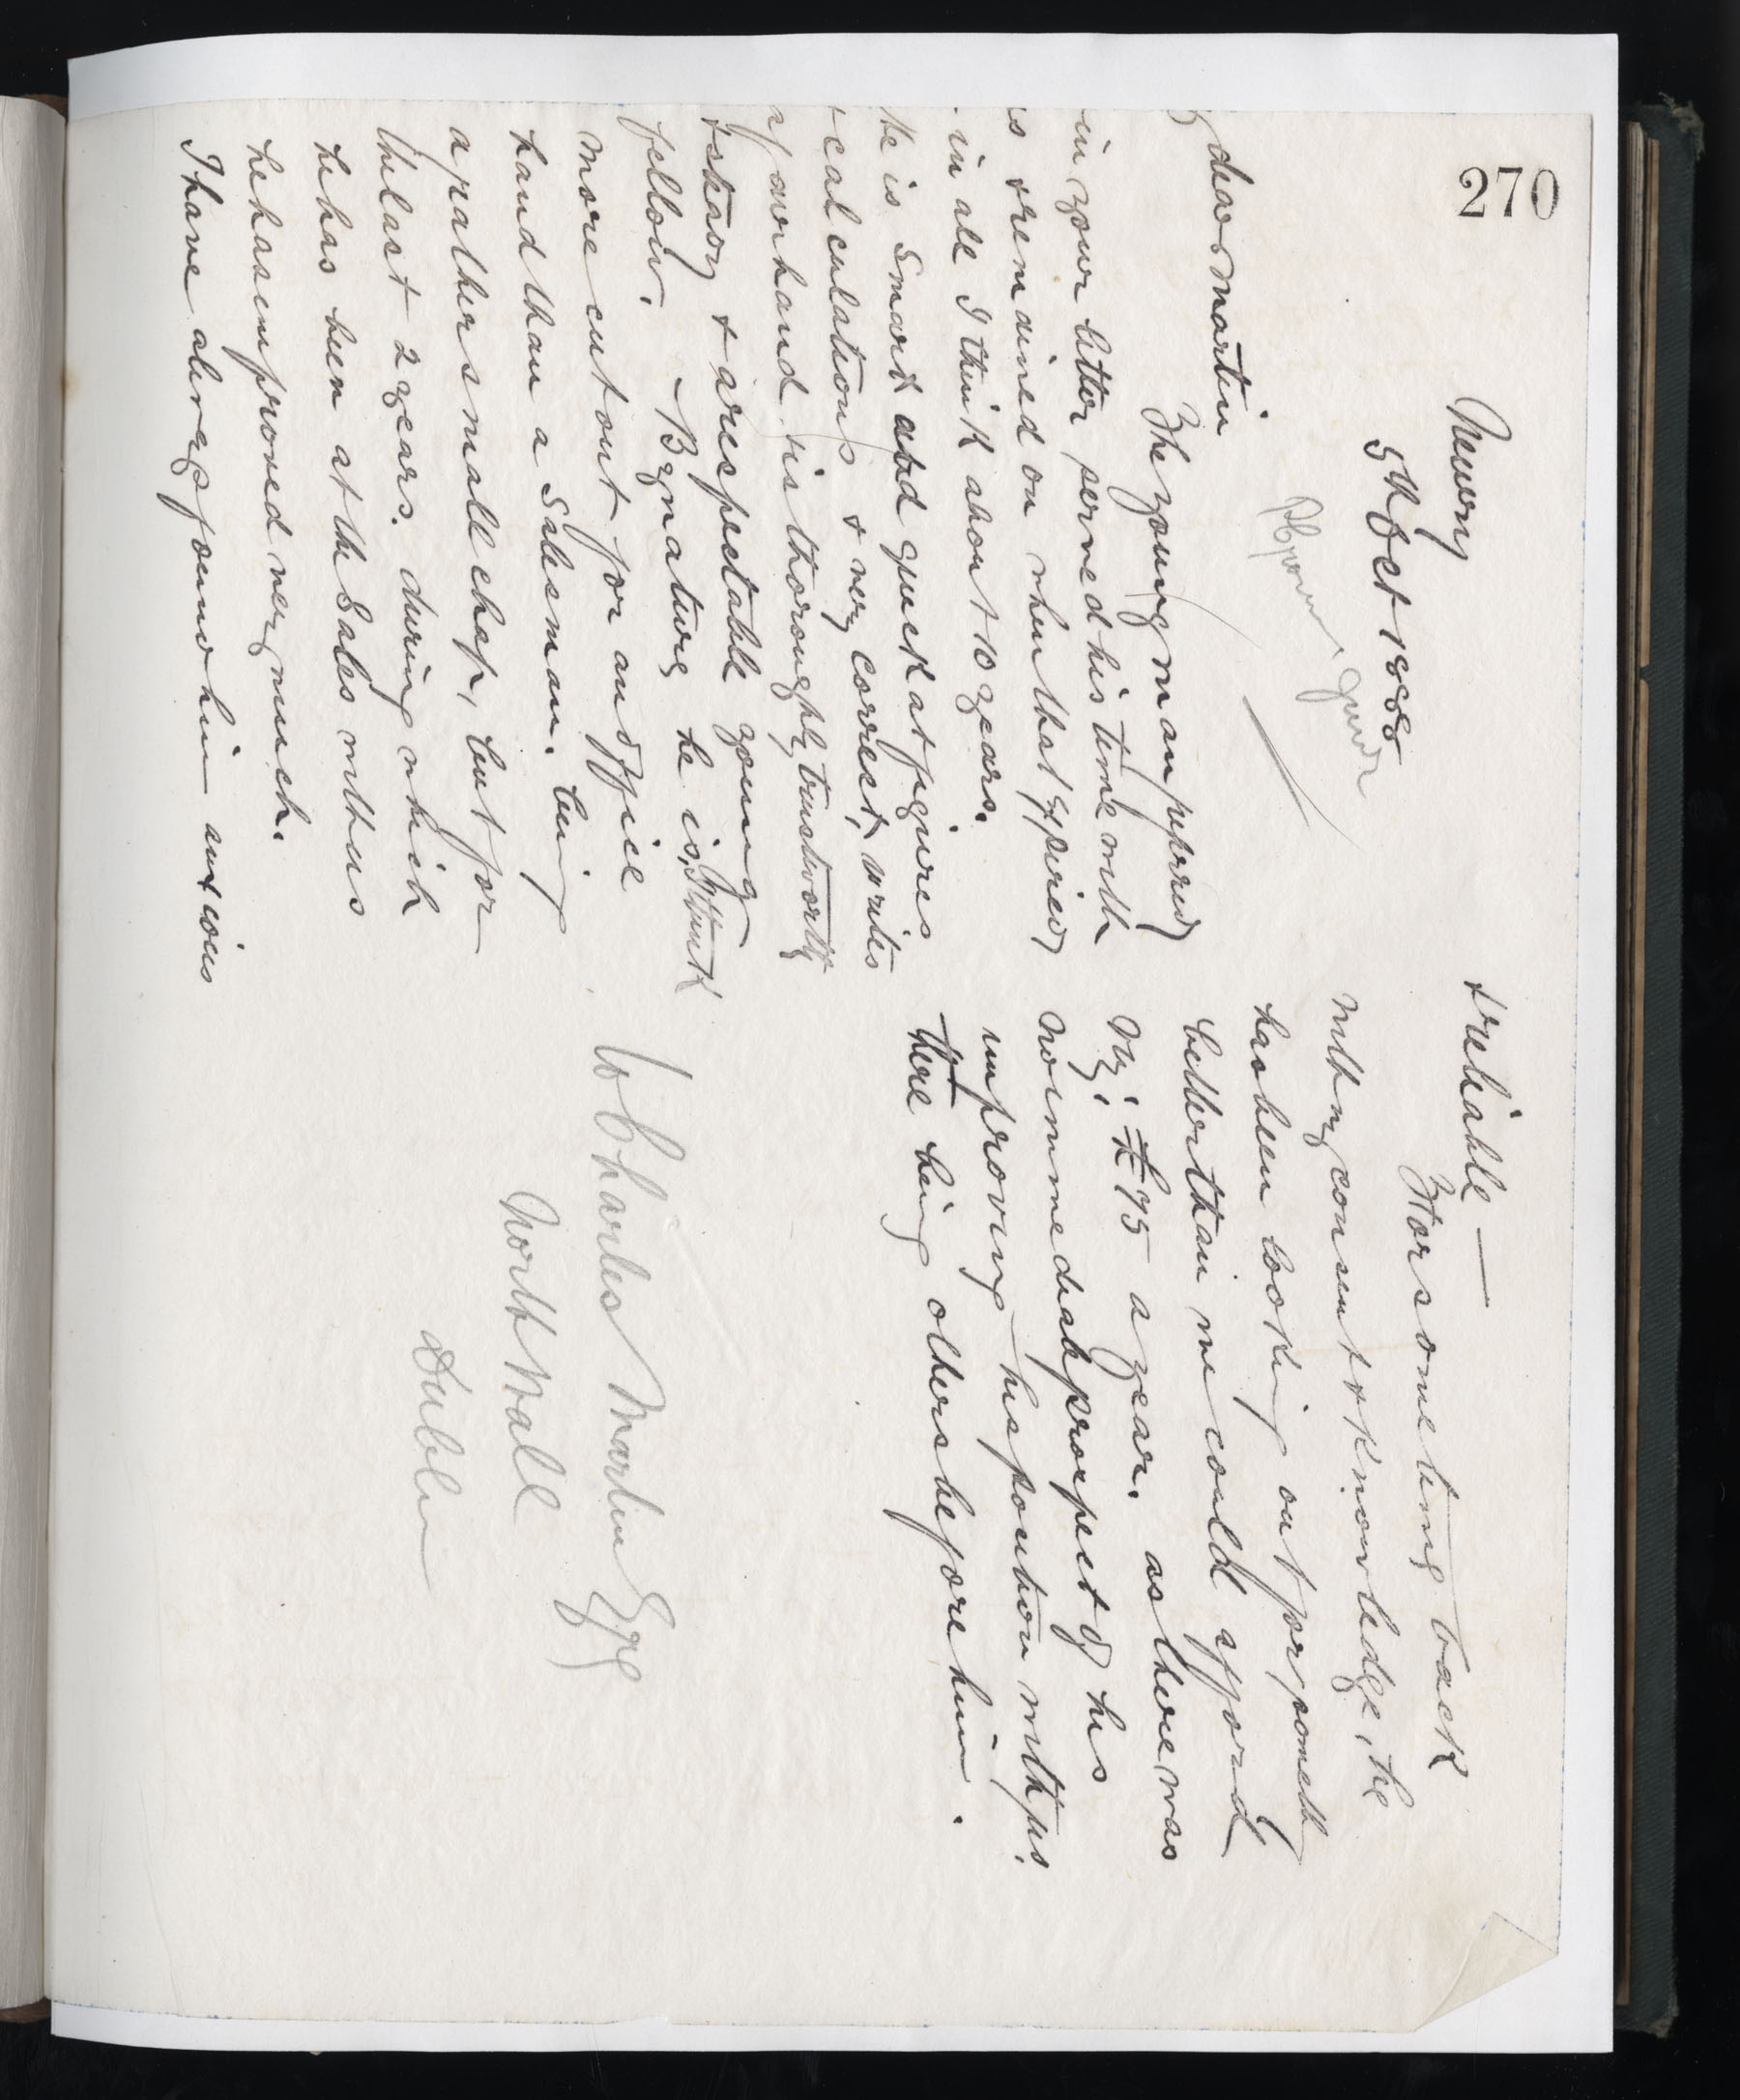 270
Newry
5th Oct 1888
dear Martin
The young man referred
in your letter served his time with
us & remained on when that expired
in all I think about 10 years.
He is smart and quick at figures
& calculations & very correct, writes
a fair hand. is thoroughly trustworthy
& steady & a respectable young
fellow. — By nature he is, I think
more cut out for an office
hand than a Salesman. being
a rather small chap, but for
the last 2 years. during which
he has been at the Sales with us
he has improved very much.
I have always found him anxious
& reliable —
For some time back
with my consent & knowledge, he
has been looking out for someth
better than we could afford
viz: £75 a year. as there was
no immediate prospect of his
improving his position with us.
there being others before him.
Charles Martin Esqre
North Wall
Dublin